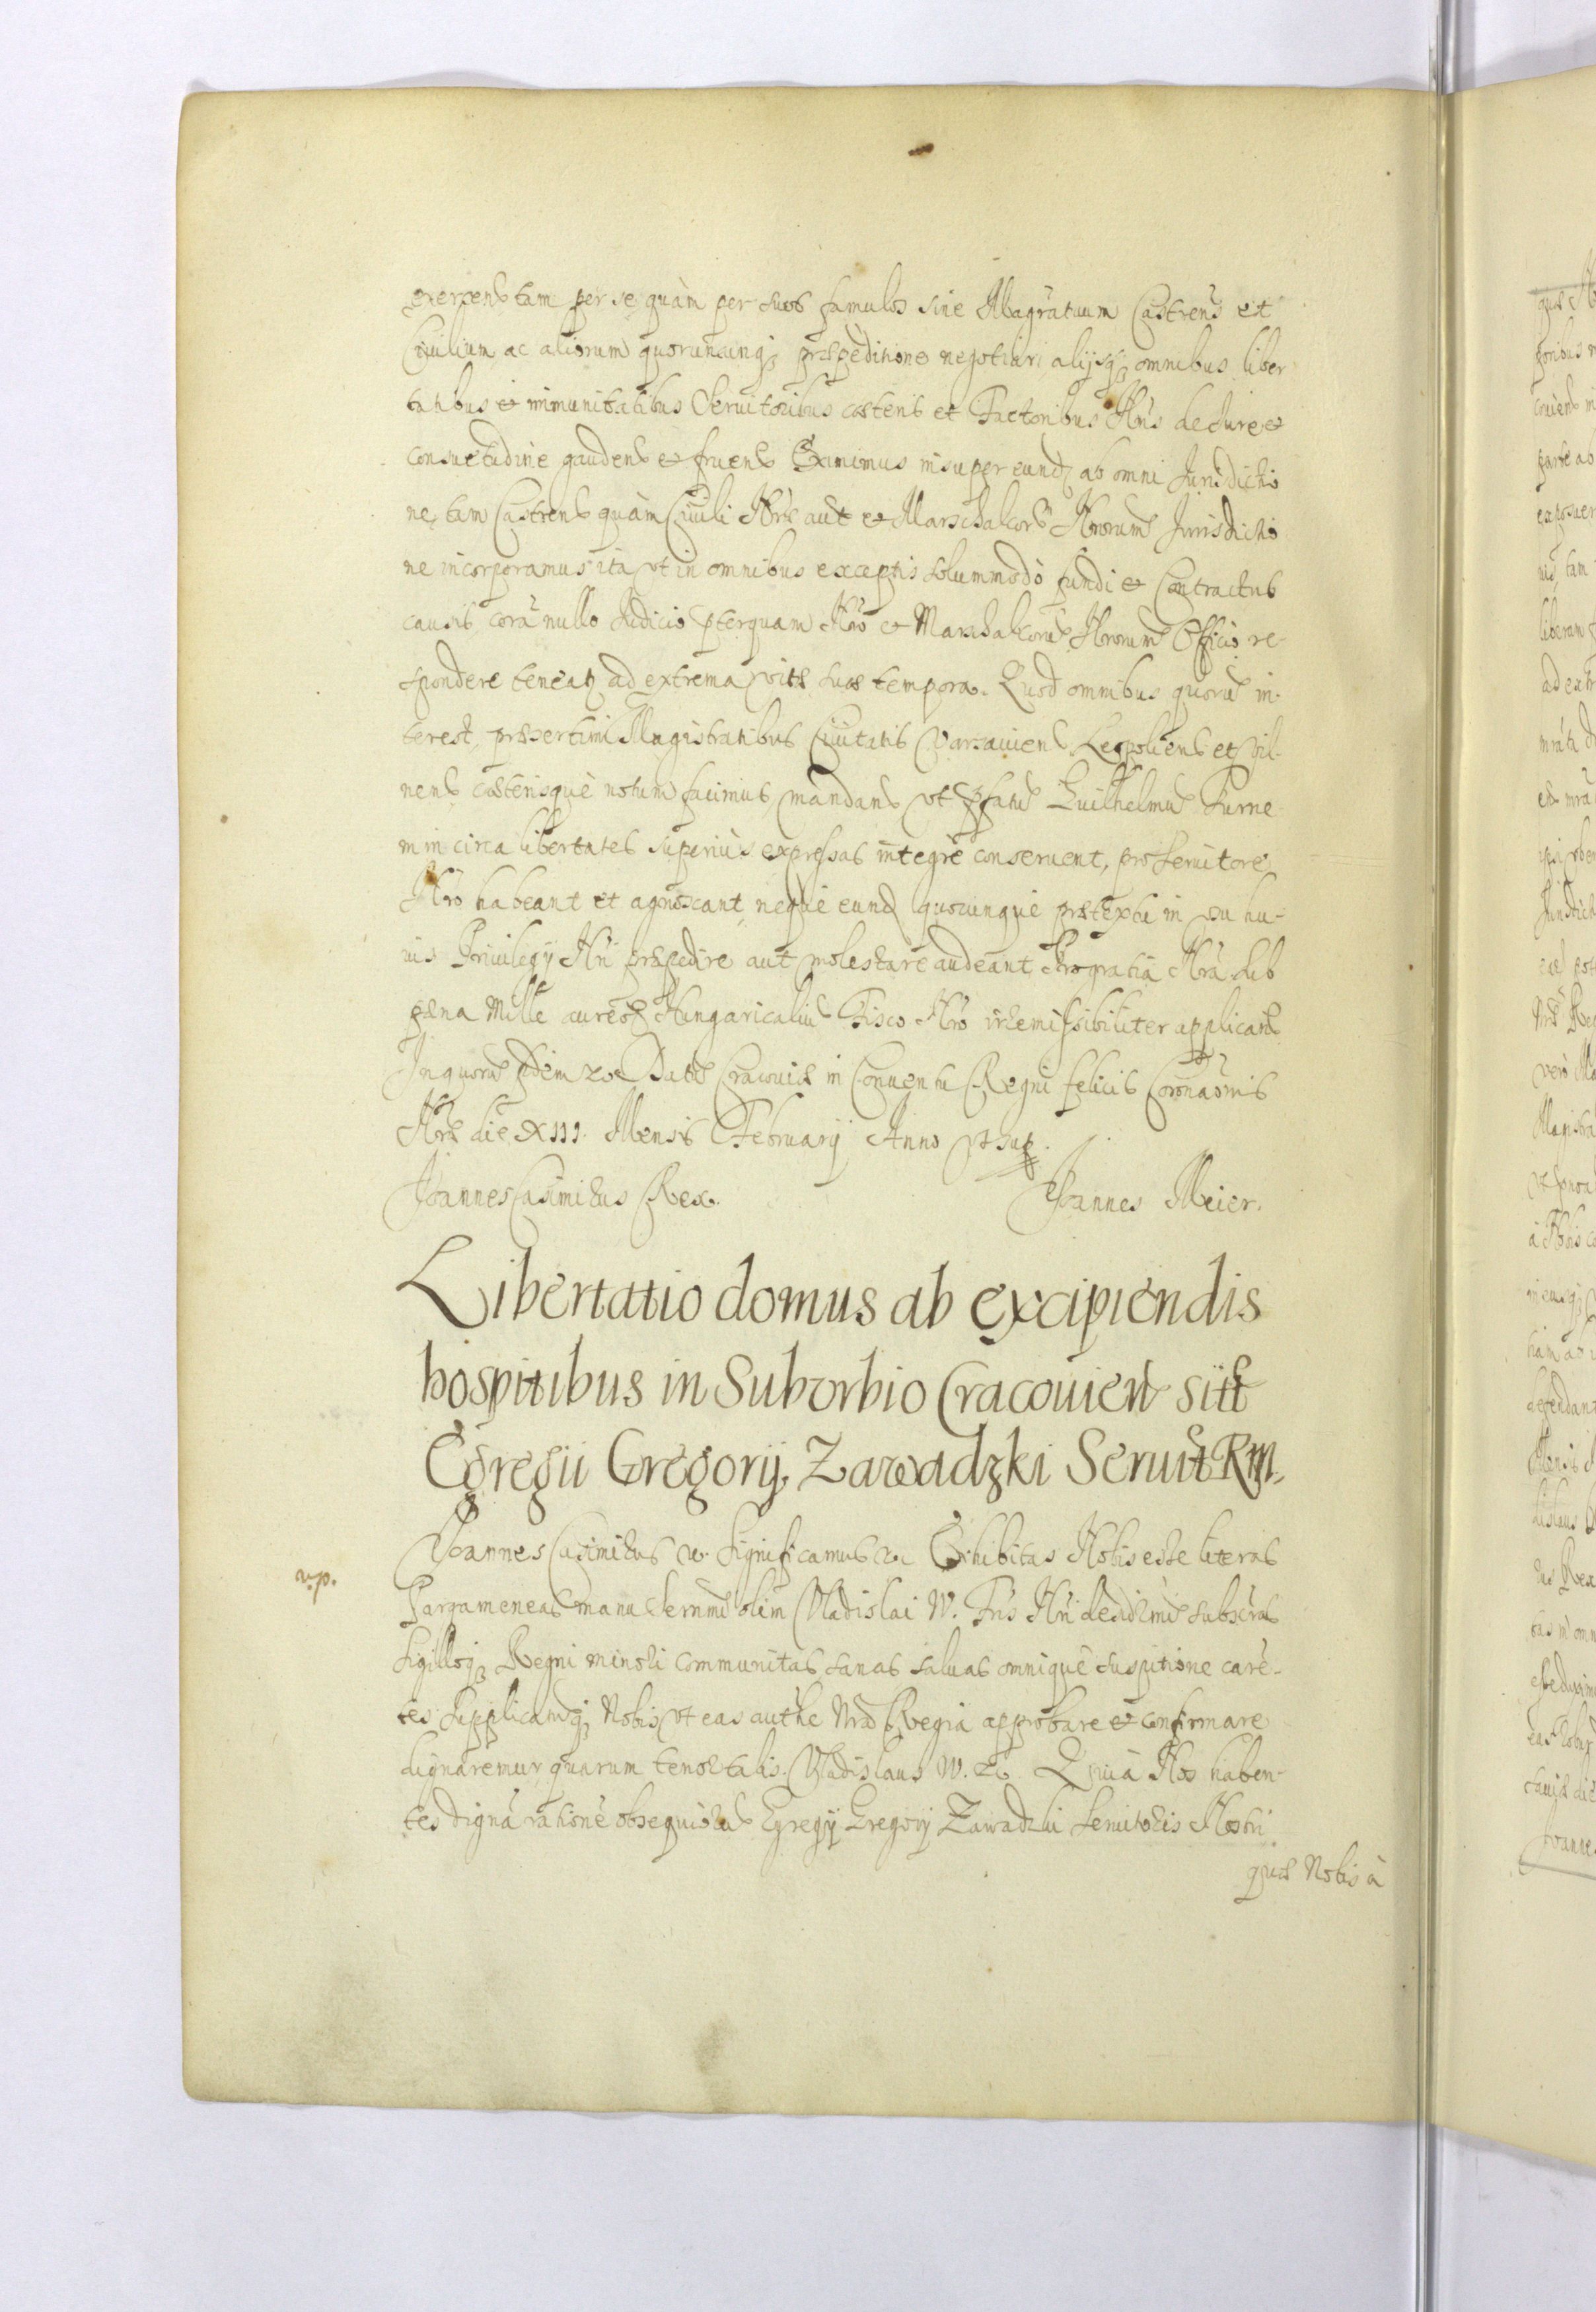 exercend tam per se quàm per suos famulos sine Magratuum Castrens et
Ciuilium ac aliorum quoruncunqȝ præpeditione negotiari alijsqȝ omnibus liber
tatibus et immunitatibus Seruitoribus cæteris et Factoribus Nris de Iure et
consuetudine gauden et fruen Eximimus insuper eund ab omni Jurisdictio
ne tam Castren quàm Ciuili Nræ aut et Marschalcorū Nrorum Jurisdictio
ne incorporamus ità vt in omnibus exceptis solummodò fundi et Contractus
causis corā nullo Iudicio pterquam Nro et Marschalcorū Nrorum Officio re-
spondere teneatʒ ad extrema vitæ suæ tempora. Quod omnibus quorū in-
terest, præsertim Magistratibus Ciuitatis Varsauien Leopolien et Vil-
nen cæterisquè notum facimus mandan vt pfatū Guilhelmū Furne
min circa libertates superiùs expressas integrè conseruent, pro seruitore
Nro habeant et agnoscant nequè eund quocunquè prætextu in vsu hu-
ius Priuilegij Nri præpedire aut molestare audeant Pro gratia Nra sub
pæna Mille aureoȝ Hungaricaliū Fisco Nro irremissibiliter applicand
In quorū fidem &c Datū Cracouiæ in Conuentu Regni felicis Coronaōnis
Nræ die XIII. Mensis February Anno vt sup.
Joannes Casimirus Rex. Joannes Meier.
Libertatio domus ab excipiendis
hospitibus in Suborbio Cracouien sitæ
Egregii Gregorij Zawadzki Seruit RM.
v.p.
Joannes Casimirus &c. Significamus &c Exhibitas Nobis esse literas
Pargameneas manu Sernmi olim Vladislai IV. Fris Nri desidmi subscras
sigilloqȝ Regni minori communitas sanas saluas omniquè suspitione carē-
tes Supplicatumqȝ Nobis vt eas authe Nrā Regia approbare et confirmare
dignaremur quarum tenor talis. Vladislaus IV. &c. Quià Nos haben-
tes dignā rationē obsequiorū Egregij Gregorij Zawadzki seruitoris Nostri
quæ Nobis à